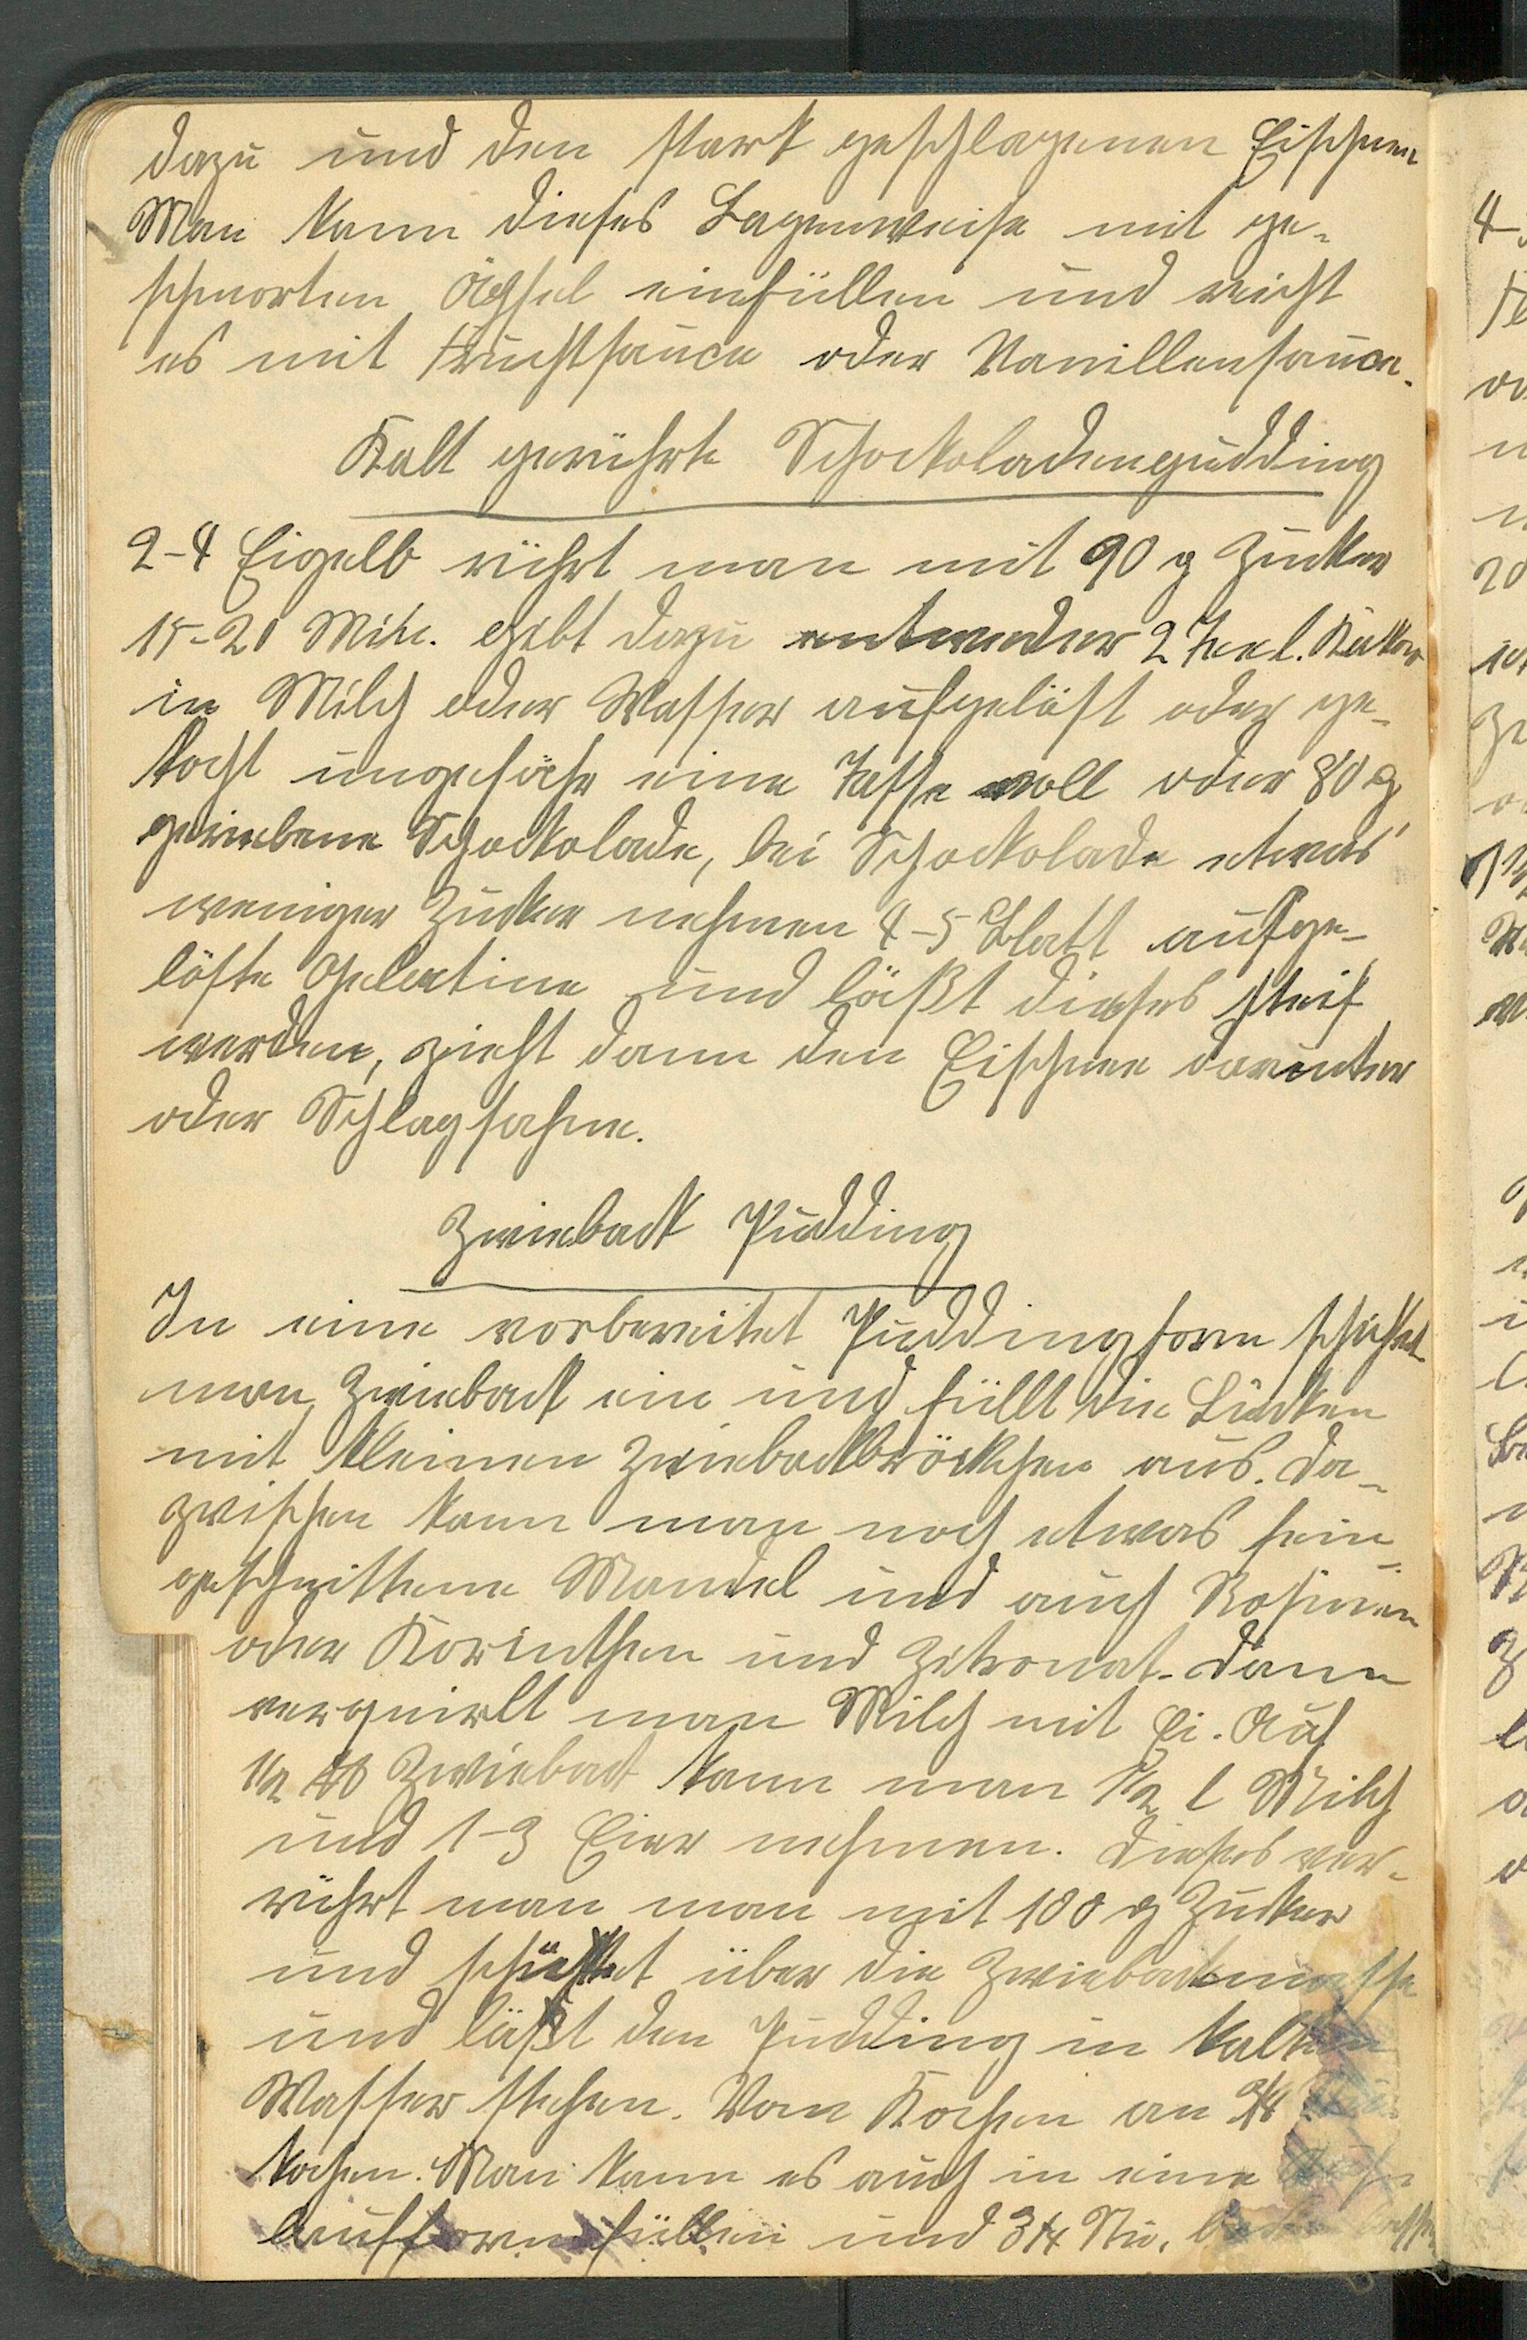 dazu und den stark geschlagenen Eischnee
Man kann dieses Lagenweise mit ge-
schmorten Äpfel einfüllen und reicht
es mit Fruchtsauce oder Vanillensauce.
Kalt gerührte Schockoladenpudding
2-4 Eigelb rührt man mit 90 g Zucker
15-20 Min. gibt dazu entweder 2 Teel. Kakao
in Milch oder Wasser aufgelöst oder ge-
kocht ungefähr eine Tasse voll oder 80 g
geriebene Schockolade, bei Schockolade etwas
weniger Zucker nehmen 4-5 Blatt aufge-
löste Gelatine und läßt dieses steif
werden, zieht dann den Eischnee darunter
oder Schlagsahne.
Zwieback Pudding
In eine vorbereitet Puddingform schichtet
man Zwieback ein und füllt die Lücken
mit kleinen Zwiebackbröckchen aus. Da-
zwischen kann man noch etwas fein-
geschnittene Mandel und auch Rosinen
oder Korinthen und Zitronat. Dann
verquirlt man Milch mit Ei. Auf
1/2 ℔ Zwieback kann man 1/2 l Milch
und 1-3 Eier nehmen. Dieses ver-
rührt man man mit 100 g Zucker
und schüttet über die Zwiebackmasse
und läßt den Pudding in kalten
Wasser stehen. Vom Kochen an
kochen. Man kann es auch in eine
laufform füllen und 3/4 Stu.